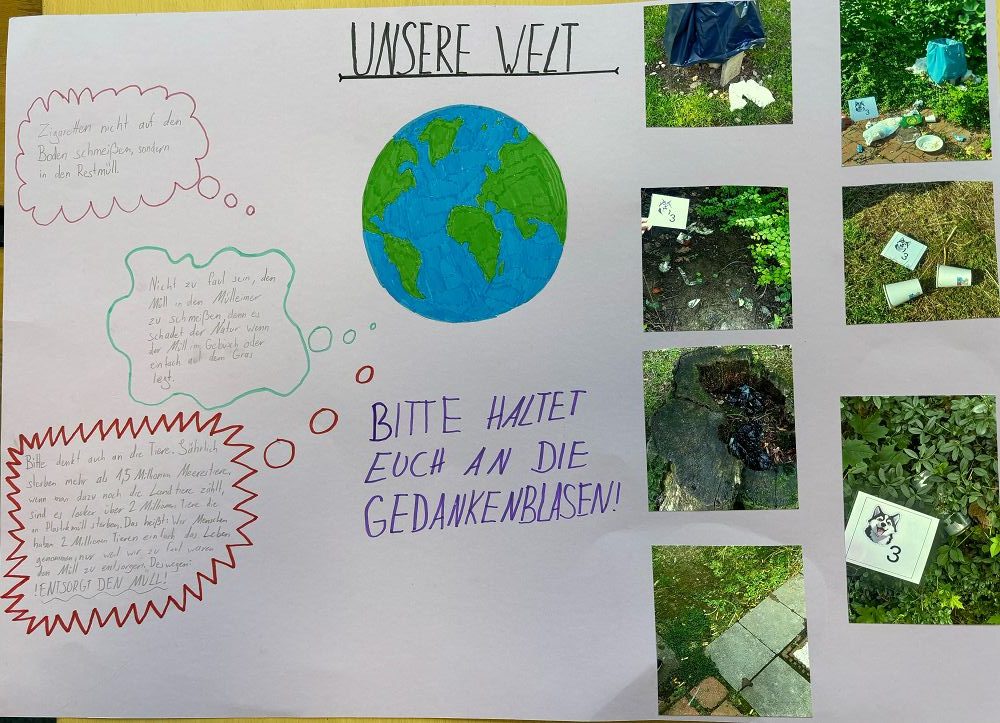 UNSERE WELT
Zigaretten nicht auf den
Boden schmeißen, sondern
in den Restmüll.
Nicht zu faul sein, den
Müll in den Mülleimer
zu schmeißen, denn es
schadet der Natur wenn
der Müll im Gebüsch oder
einfach auf dem Gras
liegt.
Bitte denkt auch an die Tiere. Jährlich
sterben mehr als 1,5 Millionen Meerestiere,
wenn man dazu noch die Landtiere zählt,
sind es locker über 2 Millionen Tiere die
an Plastikmüll sterben. Das heißt: Wir Menschen
haben 2 Millionen Tieren einfach das Leben
genommen, nur weil wir zu faul waren
den Müll zu entsorgen. Deswegen:
!ENTSORGT DEN MÜLL!
BITTE HALTET
EUCH AN DIE
GEDANKENBLASEN!
3
3
3
3